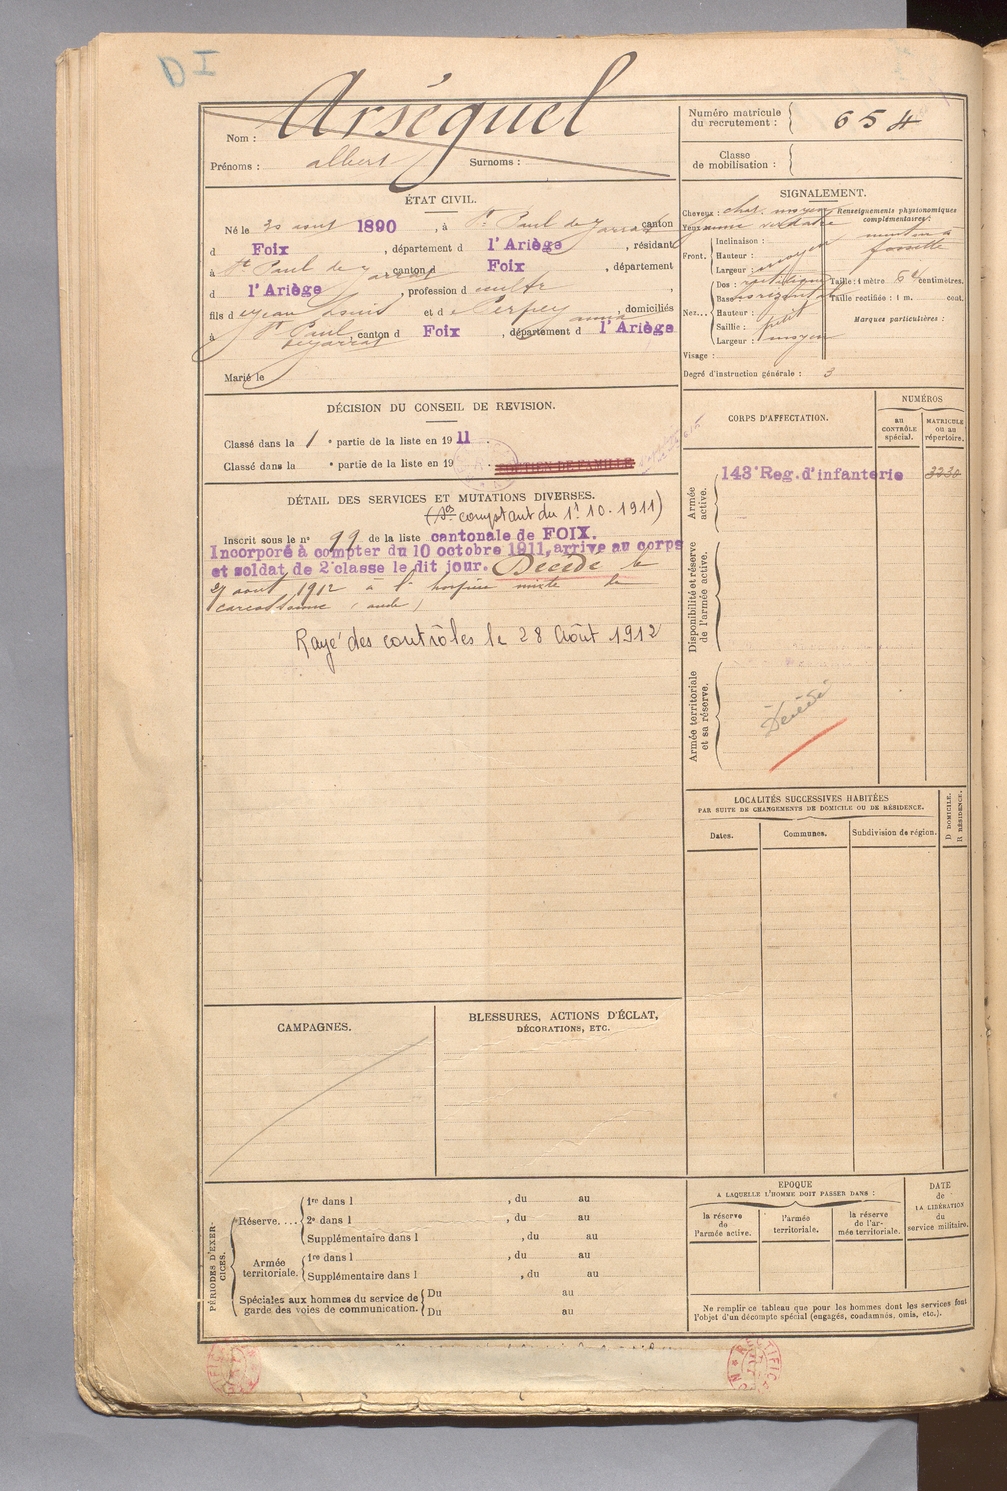 DI
Arséquel
Nom :
Prénoms : albert Surnoms :
Numéro matricule
du recrutement : 654
Classe
de mobilisation :
ÉTAT CIVIL.
Né le 30 aout 1890, à St Paul de Jarrat, canton
d Foix, département d l'Ariège, résidant
à St Paul de Jarrat, canton d Foix, département
d l'Ariège, profession d cultr,
fils d Jean et d domiciliés
à St Paul de Jarrat, canton d Foix, département d l'Ariège
Marié le
SIGNALEMENT.
Cheveux : chat. moyen
Yeux
Renseignements physionomiques
complémentaires :
menton à
fossette
Front. Inclinaison :
Hauteur : moyen
Largeur : moyen
Nez... Dos :
Base : horizontal
Hauteur :
Saillie : petit
Largeur : moyen
Taille : 1 mètre 64 centimètres.
Taille rectifiée : 1 m. cent.
Marques particulières :
Visage :
Degré d'instruction générale : 3
DÉCISION DU CONSEIL DE REVISION.
Classé dans la 1 e partie de la liste en 1911.
Classé dans la e partie de la liste en 19 . SOUTIEN DE FAMILLE
CORPS D'AFFECTATION.
NUMÉROS
au
CONTRÔLE
spécial.
MATRICULE
ou au
répertoire.
Armée
active.
143e Reg. d'infanterie 3230
Disponibilité et réserve
de l'armée active.
Armée territoriale
et sa réserve.
Décédé
DÉTAIL DES SERVICES ET MUTATIONS DIVERSES.
comptant du 1er 10. 1911)
Inscrit sous le no 99 de la liste cantonale de FOIX.
Incorporé à compter du 10 octobre 1911, arrive au corps
et soldat de 2e classe le dit jour. Décédé le
27 août 1912 à l'hospice mixte de
Carcassonne (aude)
Rayé des contrôles le 28 Août 1912
LOCALITÉS SUCCESSIVES HABITÉES
PAR SUITE DE CHANGEMENTS DE DOMICILE OU DE RÉSIDENCE.
Dates.
Communes.
Subdivision de région.
D DOMICILE.
R RÉSIDENCE.
CAMPAGNES.
BLESSURES, ACTIONS D'ÉCLAT,
DÉCORATIONS, ETC.
PÉRIODES D'EXER-
CICES.
Réserve.... 1re dans l , du au
2e dans l , du au
Supplémentaire dans l , du au
Armée
territoriale. 1re dans l , du au
Supplémentaire dans l , du au
Spéciales aux hommes du service de
garde des voies de communication. Du au
Du au
EPOQUE
A LAQUELLE L'HOMME DOIT PASSER DANS :
la réserve
de
l'armée active.
l'armée
territoriale.
la réserve
de l'ar-
mée territoriale.
DATE
de
LA LIBÉRATION
du
service militaire.
Ne remplir ce tableau que pour les hommes dont les services font
l'objet d'un décompte spécial (engagés, condamnés, omis, etc.).